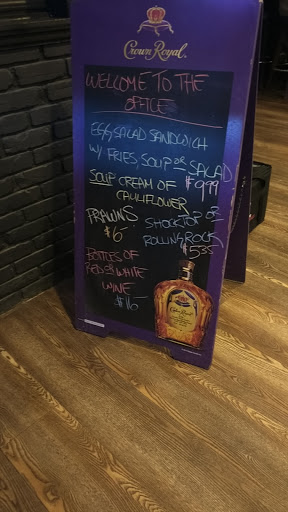 Crown Royal
WELCOME TO THE
OFFICE
EGG SALAD SANDWICH
W/ FRIES, SOUP OR SALAD
$9.99
SOUP CREAM OF
CAULIFLOWER
PRAWNS
$6-
SHOCKTOP OR
ROLLING ROCK
$5.35
BOTTLES OF
RED OR WHITE
WINE
$16-
Crown Royal